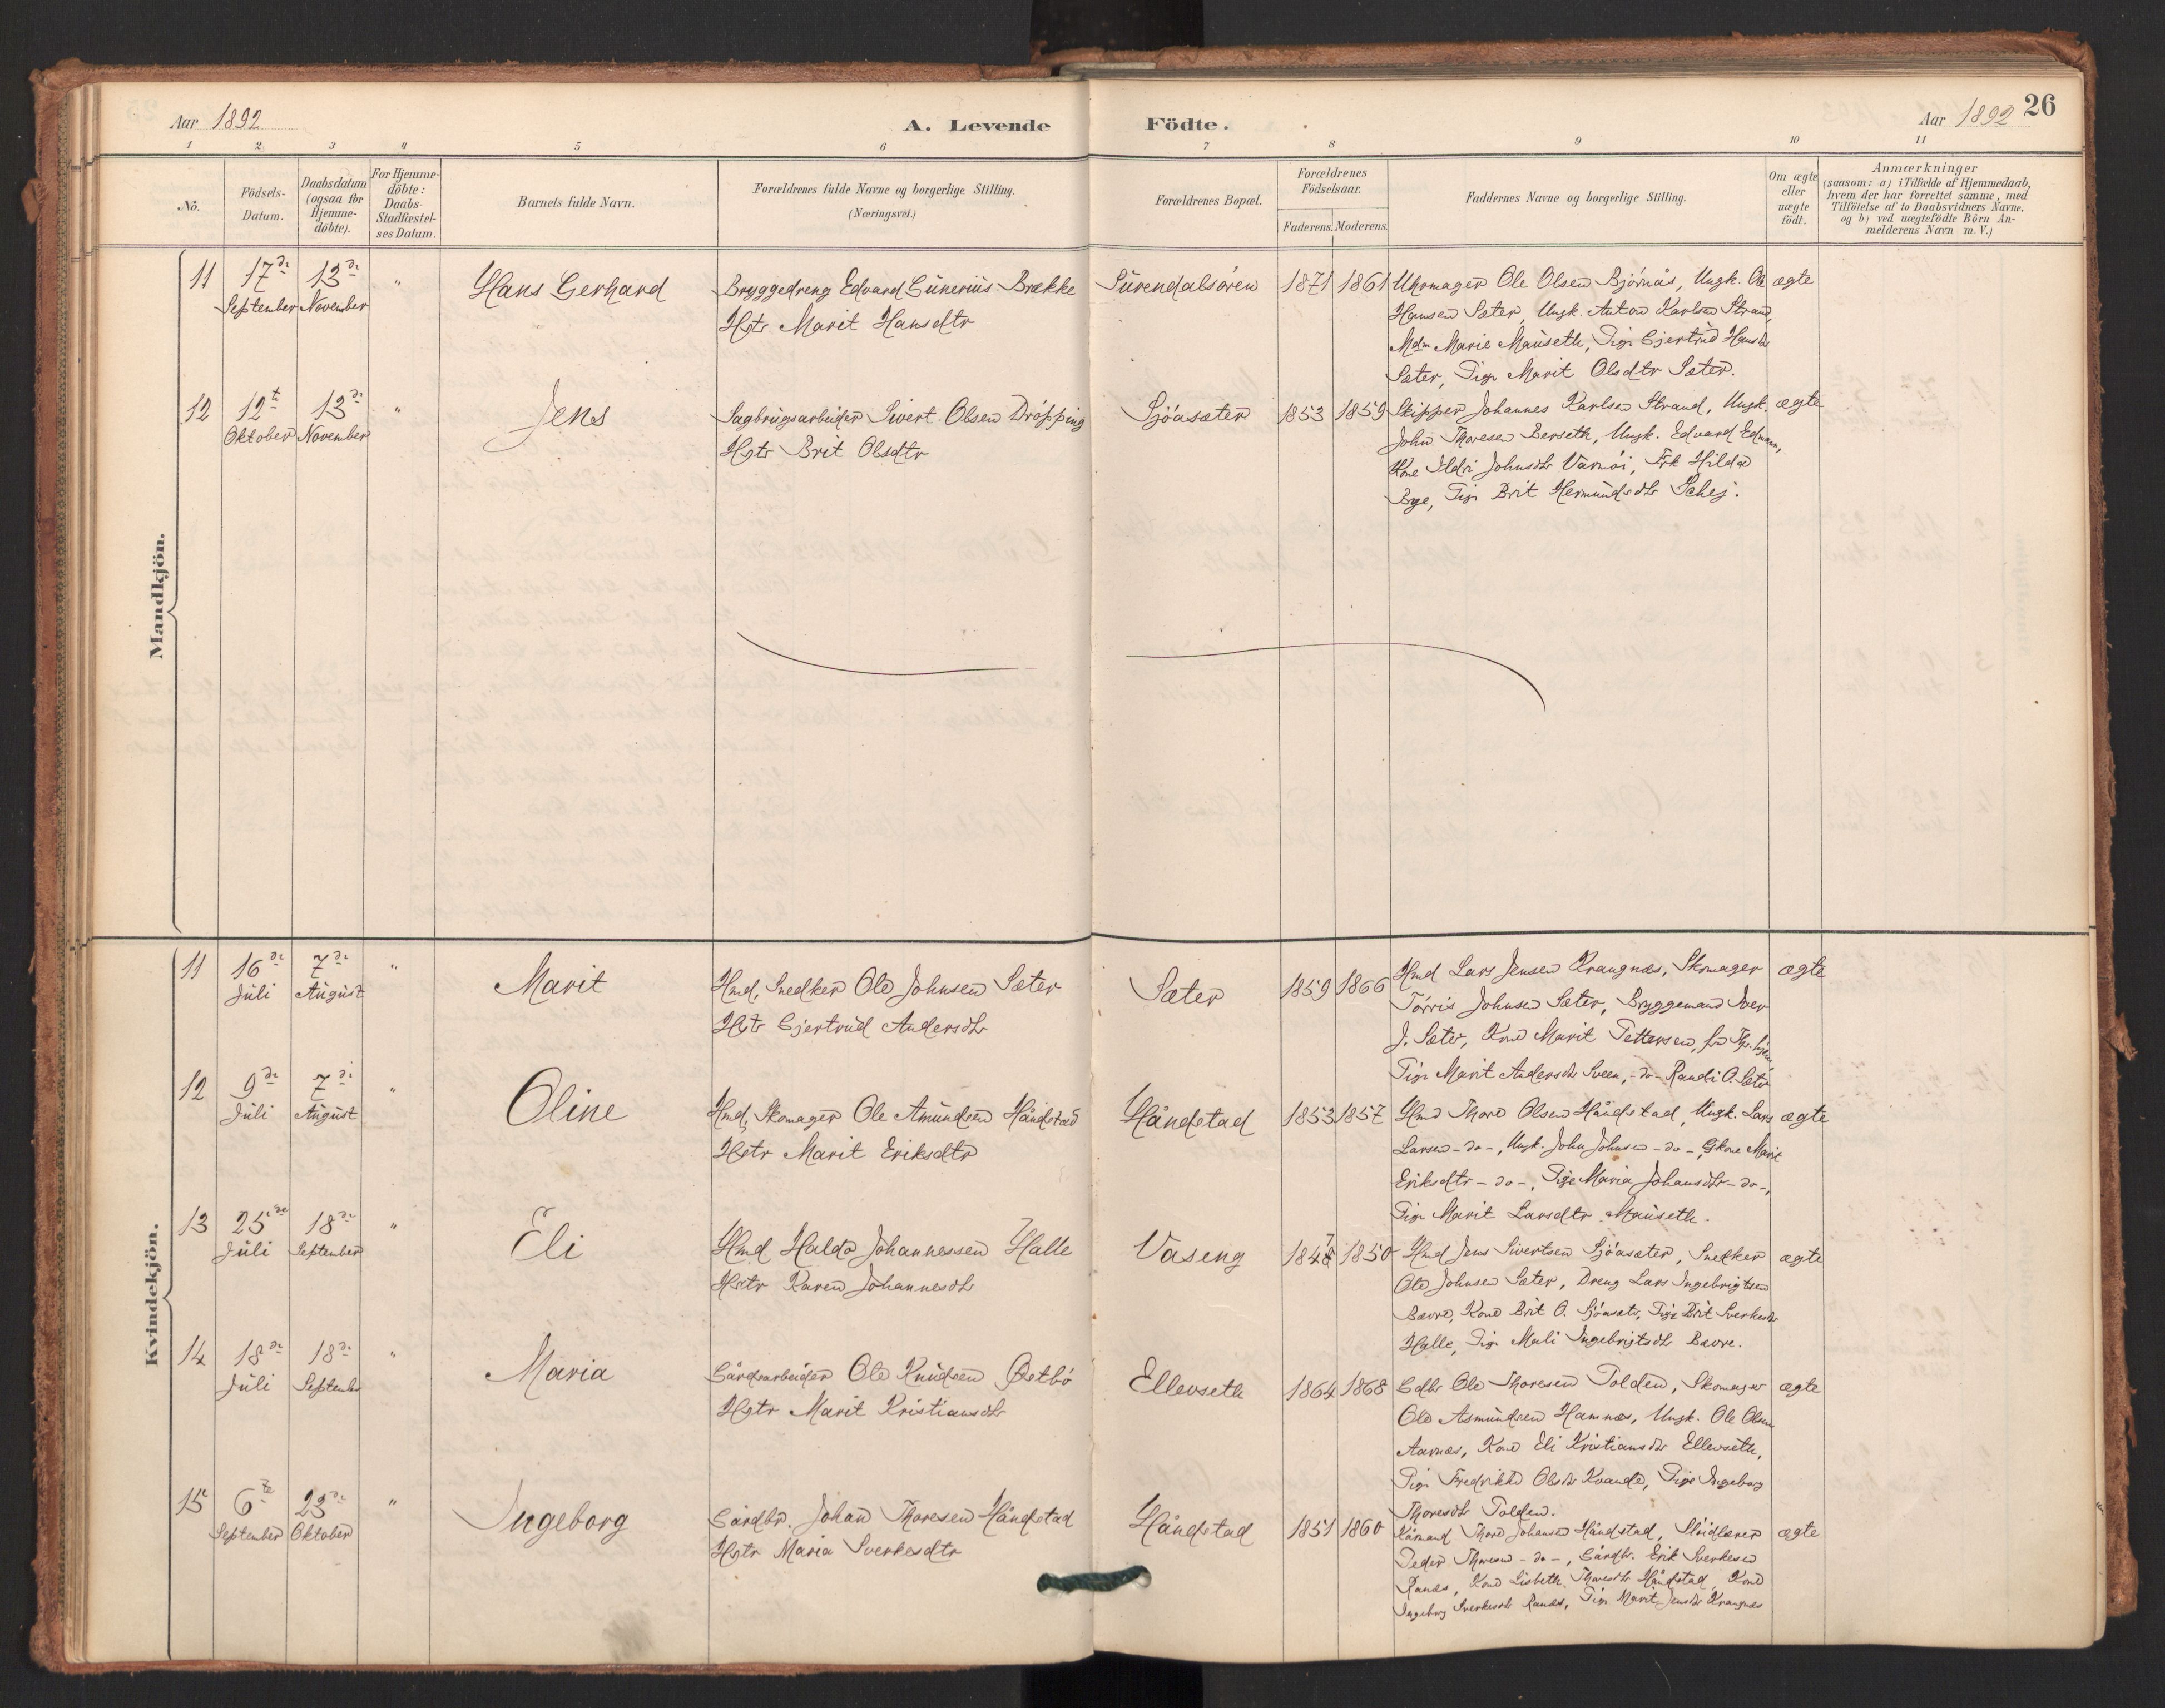 Aar 1892
A. Levende Födte.
Aar 1892 26
1 2 3 4 5 6 7 8 9 10 11
No.
Födsels-Datum.
Daabsdatum (ogsaa for Hjemme-döbte).
For Hjemme-döbte: Daabs-Stadfæstel-ses Datum.
Barnets fulde Navn.
Forældrenes fulde Navne og borgerlige Stilling. (Næringsvei.)
Forældrenes Bopæl.
Forældrenes Födselsaar.
Faderens. Moderens.
Faddernes Navne og borgerlige Stilling.
Om ægte eller uægte födt.
Anmærkninger
(saasom: a) i Tilfælde af Hjemmedaab,
hvem der har forrettet samme, med
Tilföielse af to Daabsvidners Navne.
og b) ved uægtefödte Börn An-
melderens Navn m. V.)
Mandkjön.
11 17de 13de " Hans Gerhard Bryggedreng Edvard Gunerius Brække Surendalsøren 1871 1861 Uhrmager Ole Olsen Bjørnås, Ungk. Ole ægte
September November Hstr Marit Hansdtr Hansen Sæter, Ungk. Anton Karlsen Strand,
Mdm Marie Mauseth, Pige Gjertrud Hansdtr
Sæter, Pige Marit Olsdtr Sæter.
12 12te 13de " Jens Sagbrugsarbeider Sivert Olsen Drøpping Sjøasæter 1853 1859 Skipper Johannes Karlsen Strand, Ungk. ægte
Oktober November Hstr Brit Olsdtr John Thoresen Berseth, Ungk. Edvard
Kone Ildri Johnsdtr Varmøi, Frk Hilda
Bye, Pige Brit Hermundsdtr Schej.
Kvindekjön.
11 16de 7de " Marit Hmd, Snedker Ole Johnsen Sæter Sæter 1859 1866 Hmd Lars Jensen Krangnæs, Skomager ægte
Juli August Hstr Gjertrud Andersdtr Tørris Johnsen Sæter, Bryggemand Iver
J. Sæter, Kone Marit Pettersen,
Pige Marit Andersdtr Sveen, -do- Randi O. Sæter
12 9de 7de " Oline Hmd, Skomager Ole Amundsen Håndstad Håndstad 1853 1857 Hmd Thore Olsen Håndstad, Ungk. Lars ægte
Juli August Hstr Marit Eriksdtr Larsen -do-, Ungk. John Johnsen -do-, Gkone Marit
Eriksdtr -do-, Pige Maria Johansdtr -do-,
Pige Marit Larsdtr Mauseth.
13 25de 18de " Eli Hmd Haldo Johannessen Halle Vaseng 1847 1850 Hmd Jens Sivertsen Sjøasæter, Snedker ægte
Juli September Hstr Karen Johannesdtr Ole Johnsen Sæter, Dreng Lars Ingebrigtsen
Bævre, Kone Brit O. Sjøasæter, Pige Brit Sverkesdtr
Halle, Pige Mali Ingebrigtsdtr Bævre.
14 18de 18de " Maria Gårdsarbeider Ole Knudsen Østbø Ellevseth 1864 1868 Gdbr Ole Thoresen Polden, Skomager ægte
Juli September Hstr Marit Kristiansdtr Ole Asmundsen Hamnes, Ungk. Ole Olsen
Aarnæs, Kone Eli Kristiansdtr Ellevseth,
Pige Fredrikke Olsdtr Kvande, Pige Ingeborg
Thoresdtr Polden.
15 6te 23de " Ingeborg Gårdbr. Johan Thoresen Håndstad Håndstad 1851 1860 Kårmand Thore Johansen Håndstad, Sløidlærer ægte
September Oktober Hstr Maria Sverkesdtr Peder Thoresen -do-, Gårdbr. Erik Sverkesen
Ranæs, Kone Lisbeth Thoresdtr Håndstad, Kone
Ingeborg Sverkesdtr Ranæs, Pige Marit Jensdtr Krangnæs